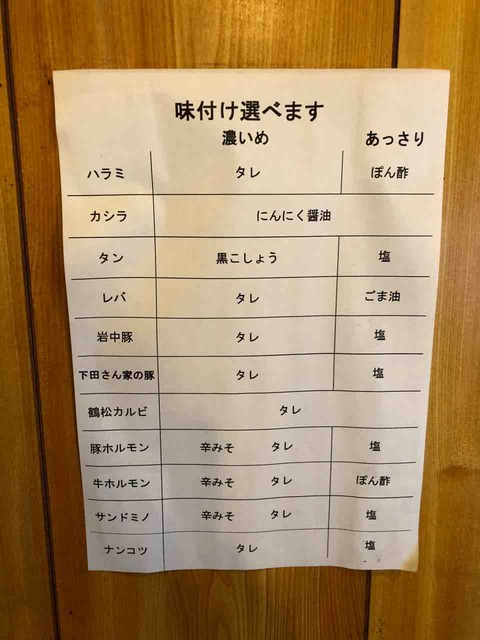 味付け選べます
濃いめ あっさり
ハラミ タレ ぽん酢
カシラ にんにく醤油
タン 黒こしょう 塩
レバ タレ ごま油
岩中豚 タレ 塩
下田さん家の豚 タレ 塩
鶴松カルビ タレ
豚ホルモン 辛みそ タレ 塩
牛ホルモン 辛みそ タレ ぽん酢
サンドミノ 辛みそ タレ 塩
ナンコツ タレ 塩